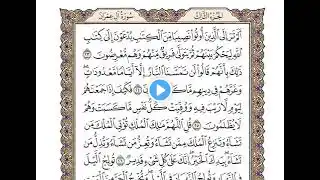 الجزء الثالث سورة آل عمران
أَلَمْ تَرَ إِلَى ٱلَّذِينَ أُوتُوا۟ نَصِيبًا مِّنَ ٱلْكِتَٰبِ يُدْعَوْنَ إِلَىٰ كِتَٰبِ
ٱللَّهِ لِيَحْكُمَ بَيْنَهُمْ ثُمَّ يَتَوَلَّىٰ فَرِيقٌ مِّنْهُمْ وَهُم مُّعْرِضُونَ ٢٣
ذَٰلِكَ بِأَنَّهُمْ قَالُوا۟ لَن تَمَسَّنَا ٱلنَّارُ إِلَّآ أَيَّامًا مَّعْدُودَٰتٍ
وَغَرَّهُمْ فِى دِينِهِم مَّا فَكَيْفَ إِذَا جَمَعْنَٰهُمْ
لِيَوْمٍ لَّا رَيْبَ فِيهِ وَوُفِّيَتْ كُلُّ نَفْسٍ مَّا كَسَبَتْ وَهُمْ
لَا يُظْلَمُونَ ٢٥ قُلِ ٱللَّهُمَّ مَٰلِكَ ٱلْمُلْكِ تُؤْتِى ٱلْمُلْكَ مَن
تَشَآءُ وَتَنزِعُ ٱلْمُلْكَ مِمَّن تَشَآءُ وَتُعِزُّ مَن تَشَآءُ وَتُذِلُّ مَن
تَشَآءُ بِيَدِكَ ٱلْخَيْرُ إِنَّكَ عَلَىٰ كُلِّ شَىْءٍ قَدِيرٌ ٢٦ تُولِجُ ٱلَّيْلَ